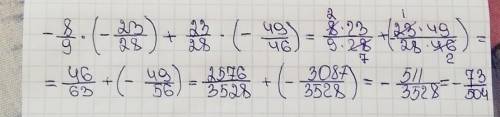 -8/9 · (-23/28) + 23/28 · (-49/46) = 8·23/9·28 + (23·49/28·46) =
= 46/63 + (-49/56) = 2576/3528 + (-3087/3528) = -511/3528 = -73/504